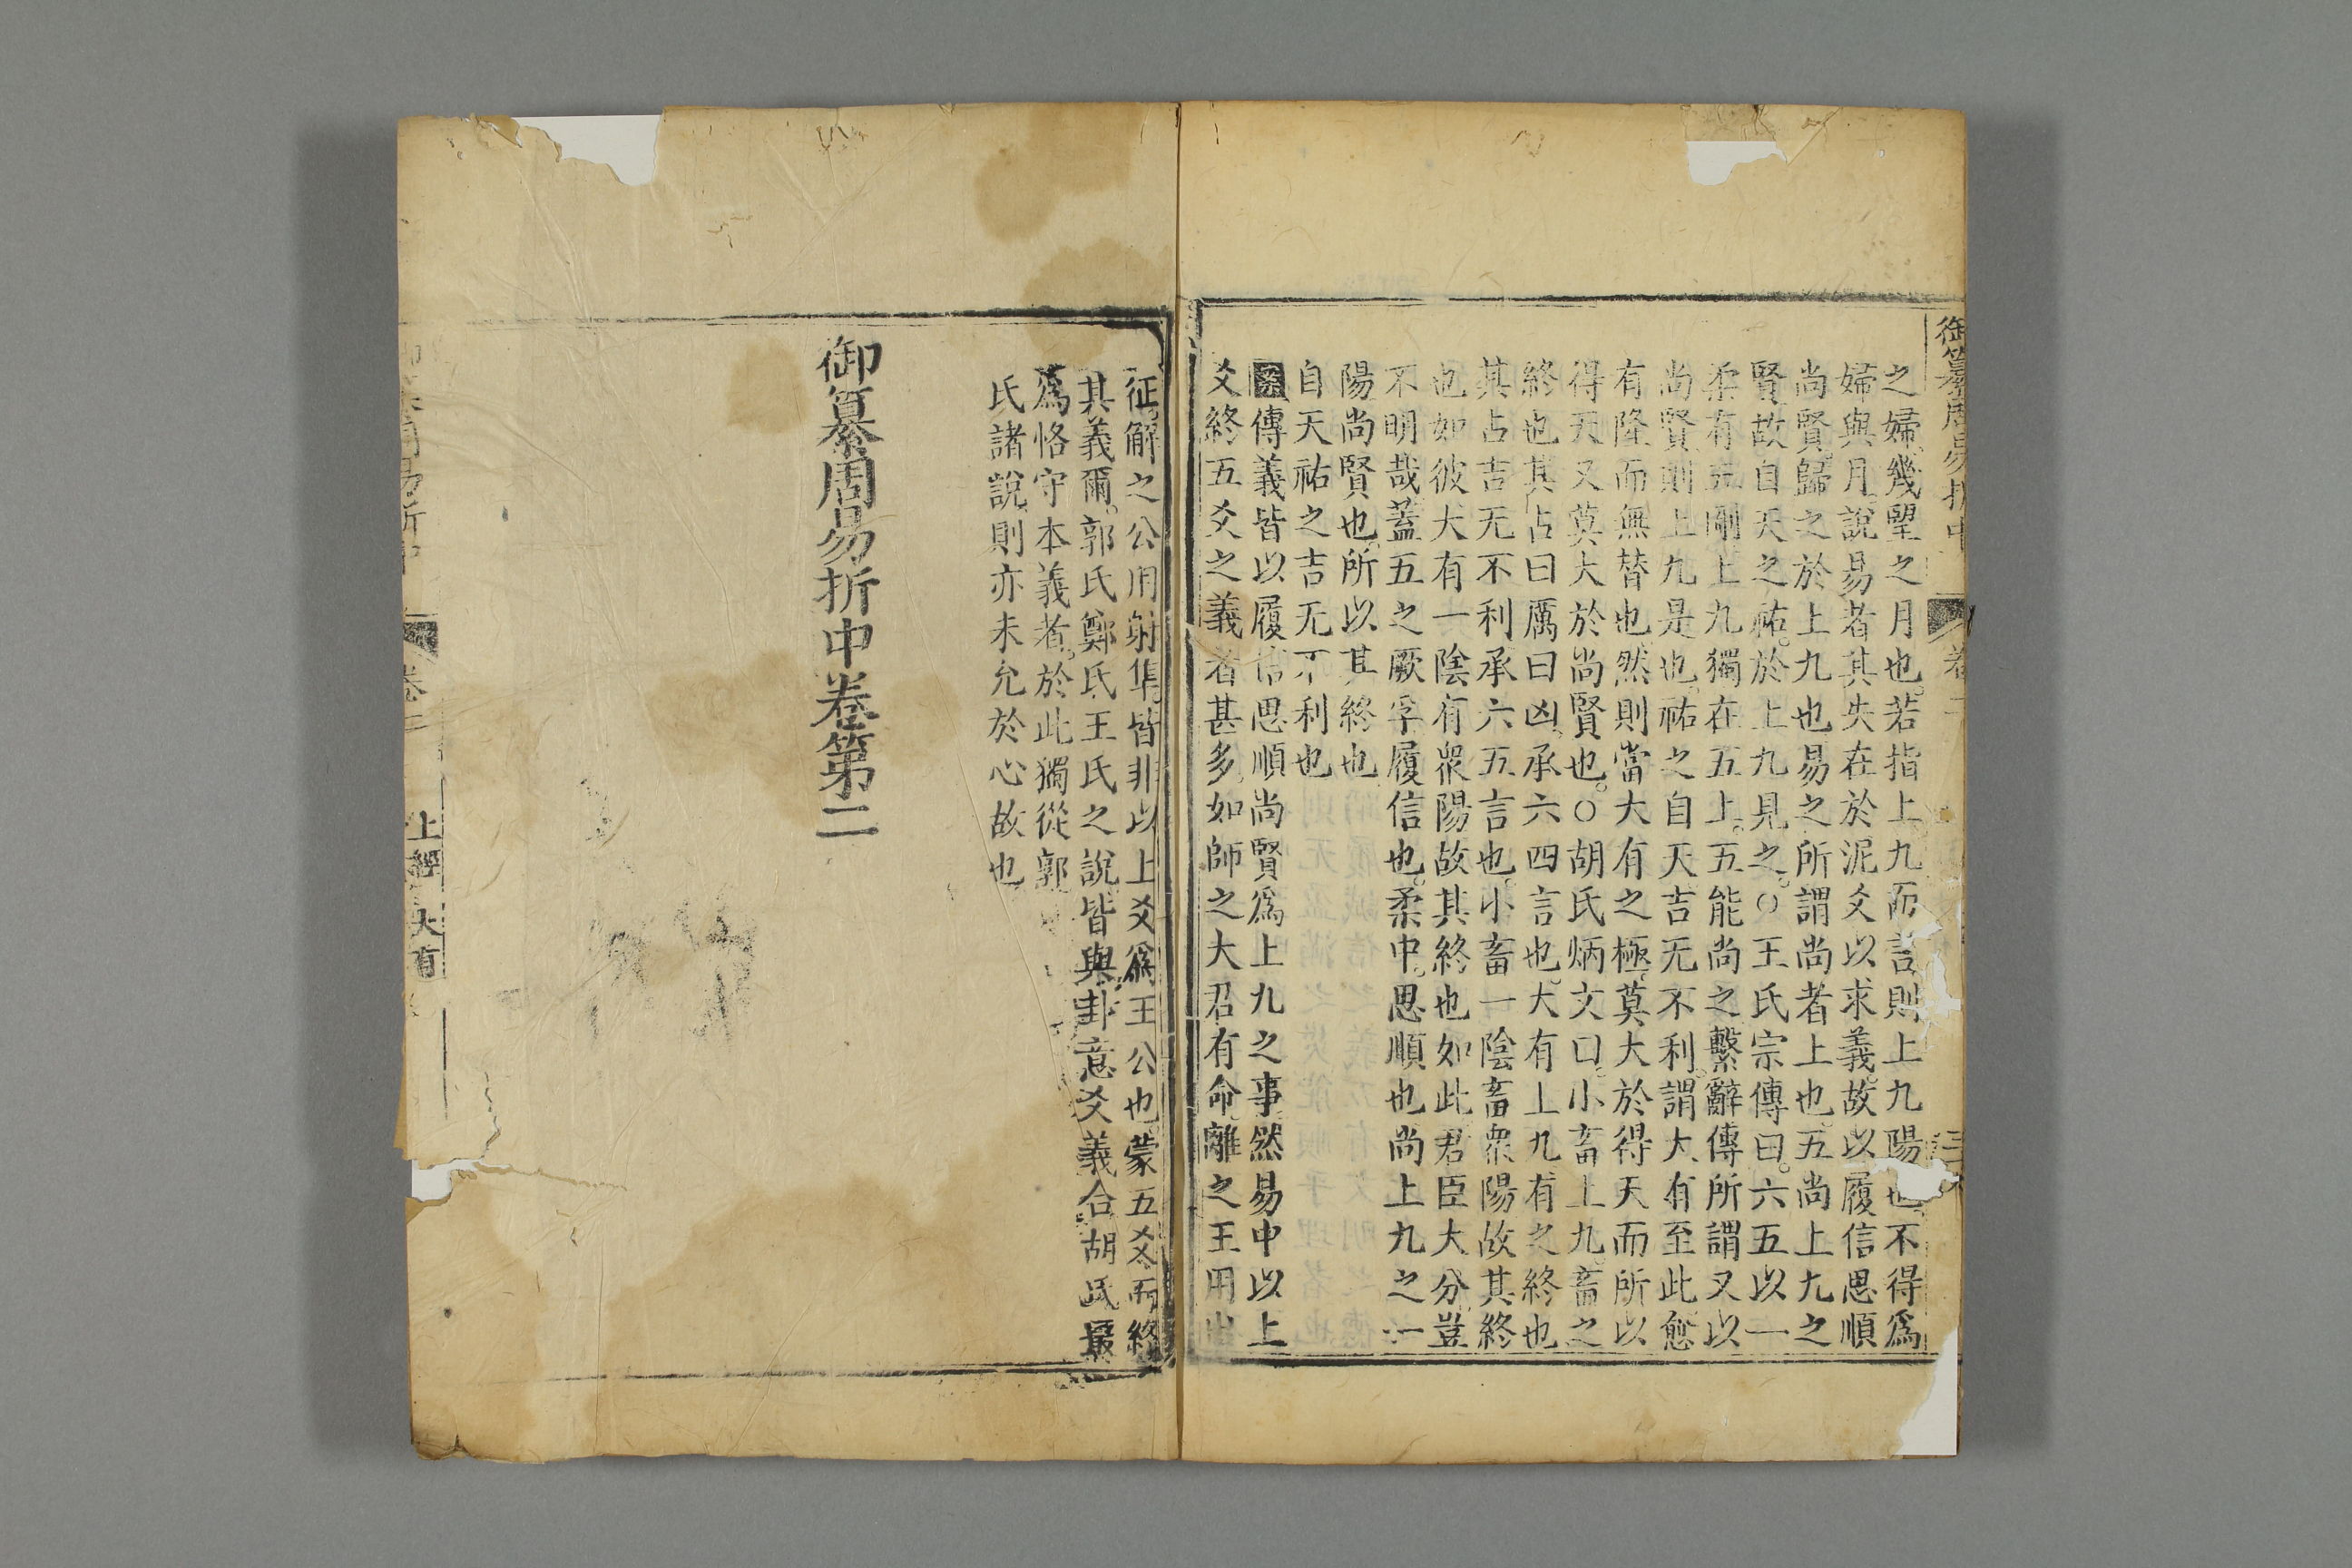 御纂周易折中
卷二
之婦幾望之月也若指上九而言則上九陽也不得爲
婦與月說易者其失在於泥爻以求義故以履信思順
尚賢歸之於上九也易之所謂尚者上也五尚上九之
賢故自天之祐於上九見之○王氏宗傳曰六五以一
柔有五剛上九獨在五上五能尚之繫辭傳所謂又以
尚賢則上九是也祐之自天吉无不利謂大有至此愈
有隆而無替也然則當大有之極莫大於得天而所以
得天又莫大於尚賢也○胡氏炳文曰小畜上九畜之
終也其占曰厲曰凶承六四言也大有上九有之終也
其占吉无不利承六五言也小畜一陰畜衆陽故其終
也如彼大有一陰有衆陽故其終也如此君臣大分豈
不明哉蓋五之厥孚履信也柔中思順也尚上九之一
陽尚賢也所以其終也
自天祐之吉无不利也
案傳義皆以履信思順尚賢爲上九之事然易中以上
爻終五爻之義者甚多如師之大君有命離之王用出
征解之公用射隼皆非以上爻爲王公也蒙五爻而終
其義爾郭氏鄭氏王氏之說皆與卦意爻義合胡氏最
爲恪守本義者於此獨從郭
氏諸說則亦未允於心故也
御纂周易折中卷第二
周易折中
卷二
上經 大有